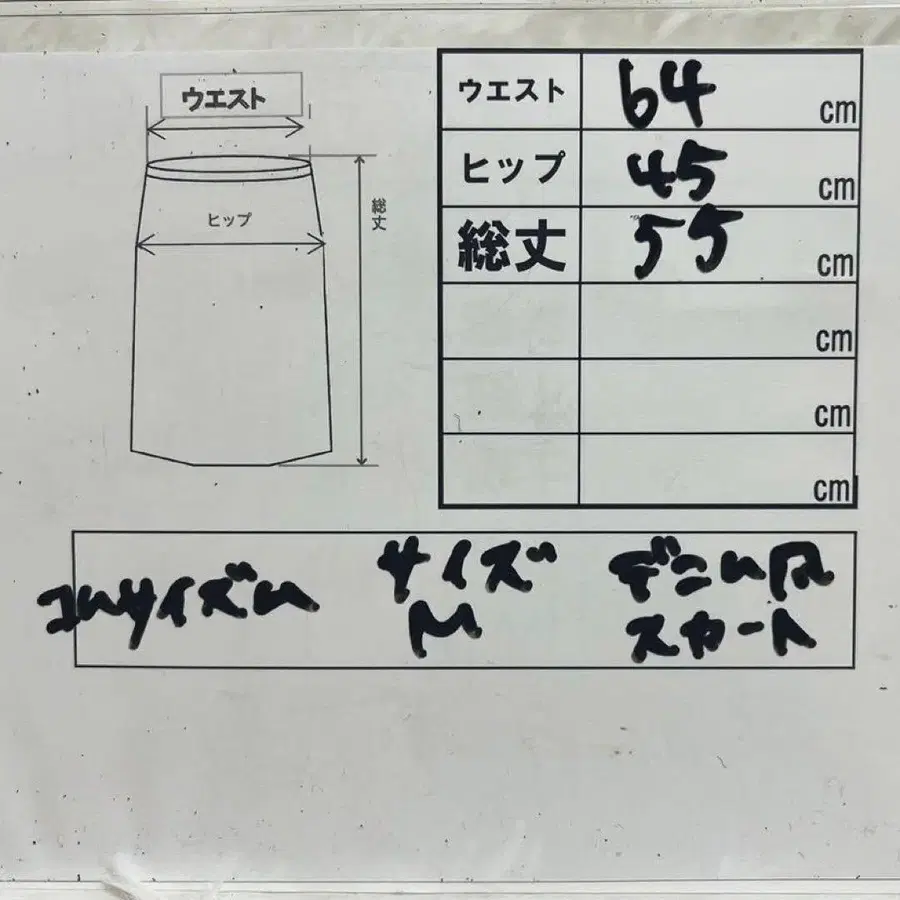 ウエスト
ヒップ
総丈
ウエスト 64 cm
ヒップ 45 cm
総丈 55 cm
cm
cm
cm
コムサイズム
サイズ
M
デニム風
スカート